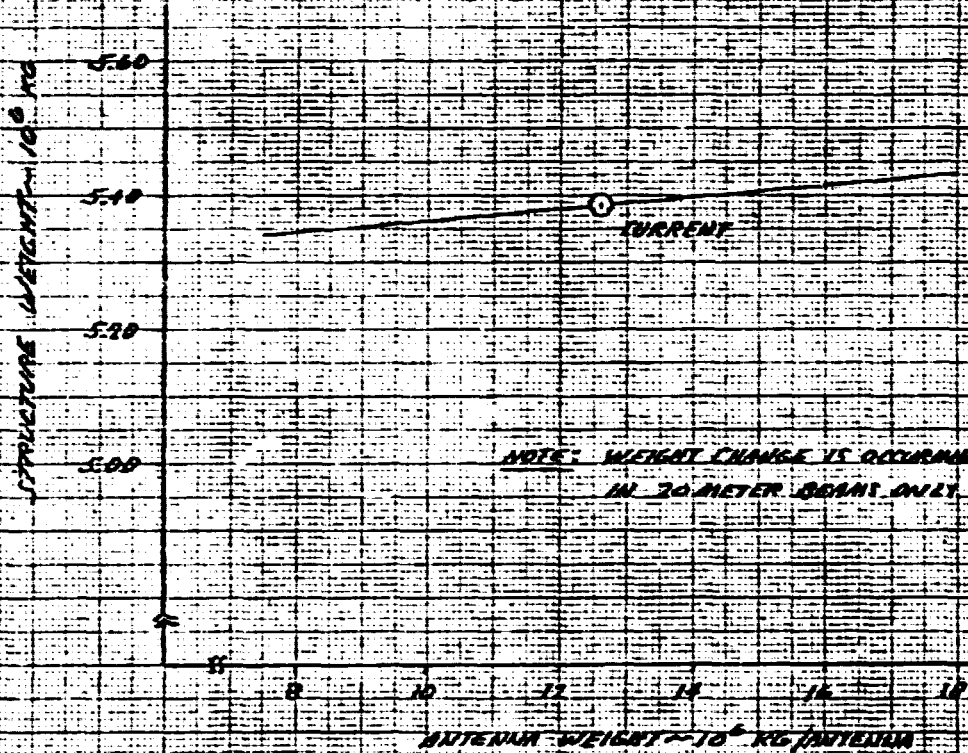 5.60
5.40
5.20
5.00
STRUCTURE WEIGHT ~ 10⁶ KG
CURRENT
NOTE: WEIGHT CHANGE IS OCCURRING
IN 20 METER BEAMS ONLY.
8 10 12 14 16 18
ANTENNA WEIGHT ~ 10⁶ KG/ANTENNA